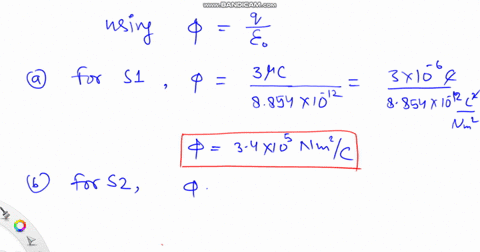 WWW.BANDICAM.COM
using φ = q/ε₀
(a) for S1, φ = 3μC / 8.854×10⁻¹² = 3×10⁻⁶ C / 8.854×10⁻¹² C²/Nm²
φ = 3.4×10⁵ Nm²/C
(b) for S2, φ